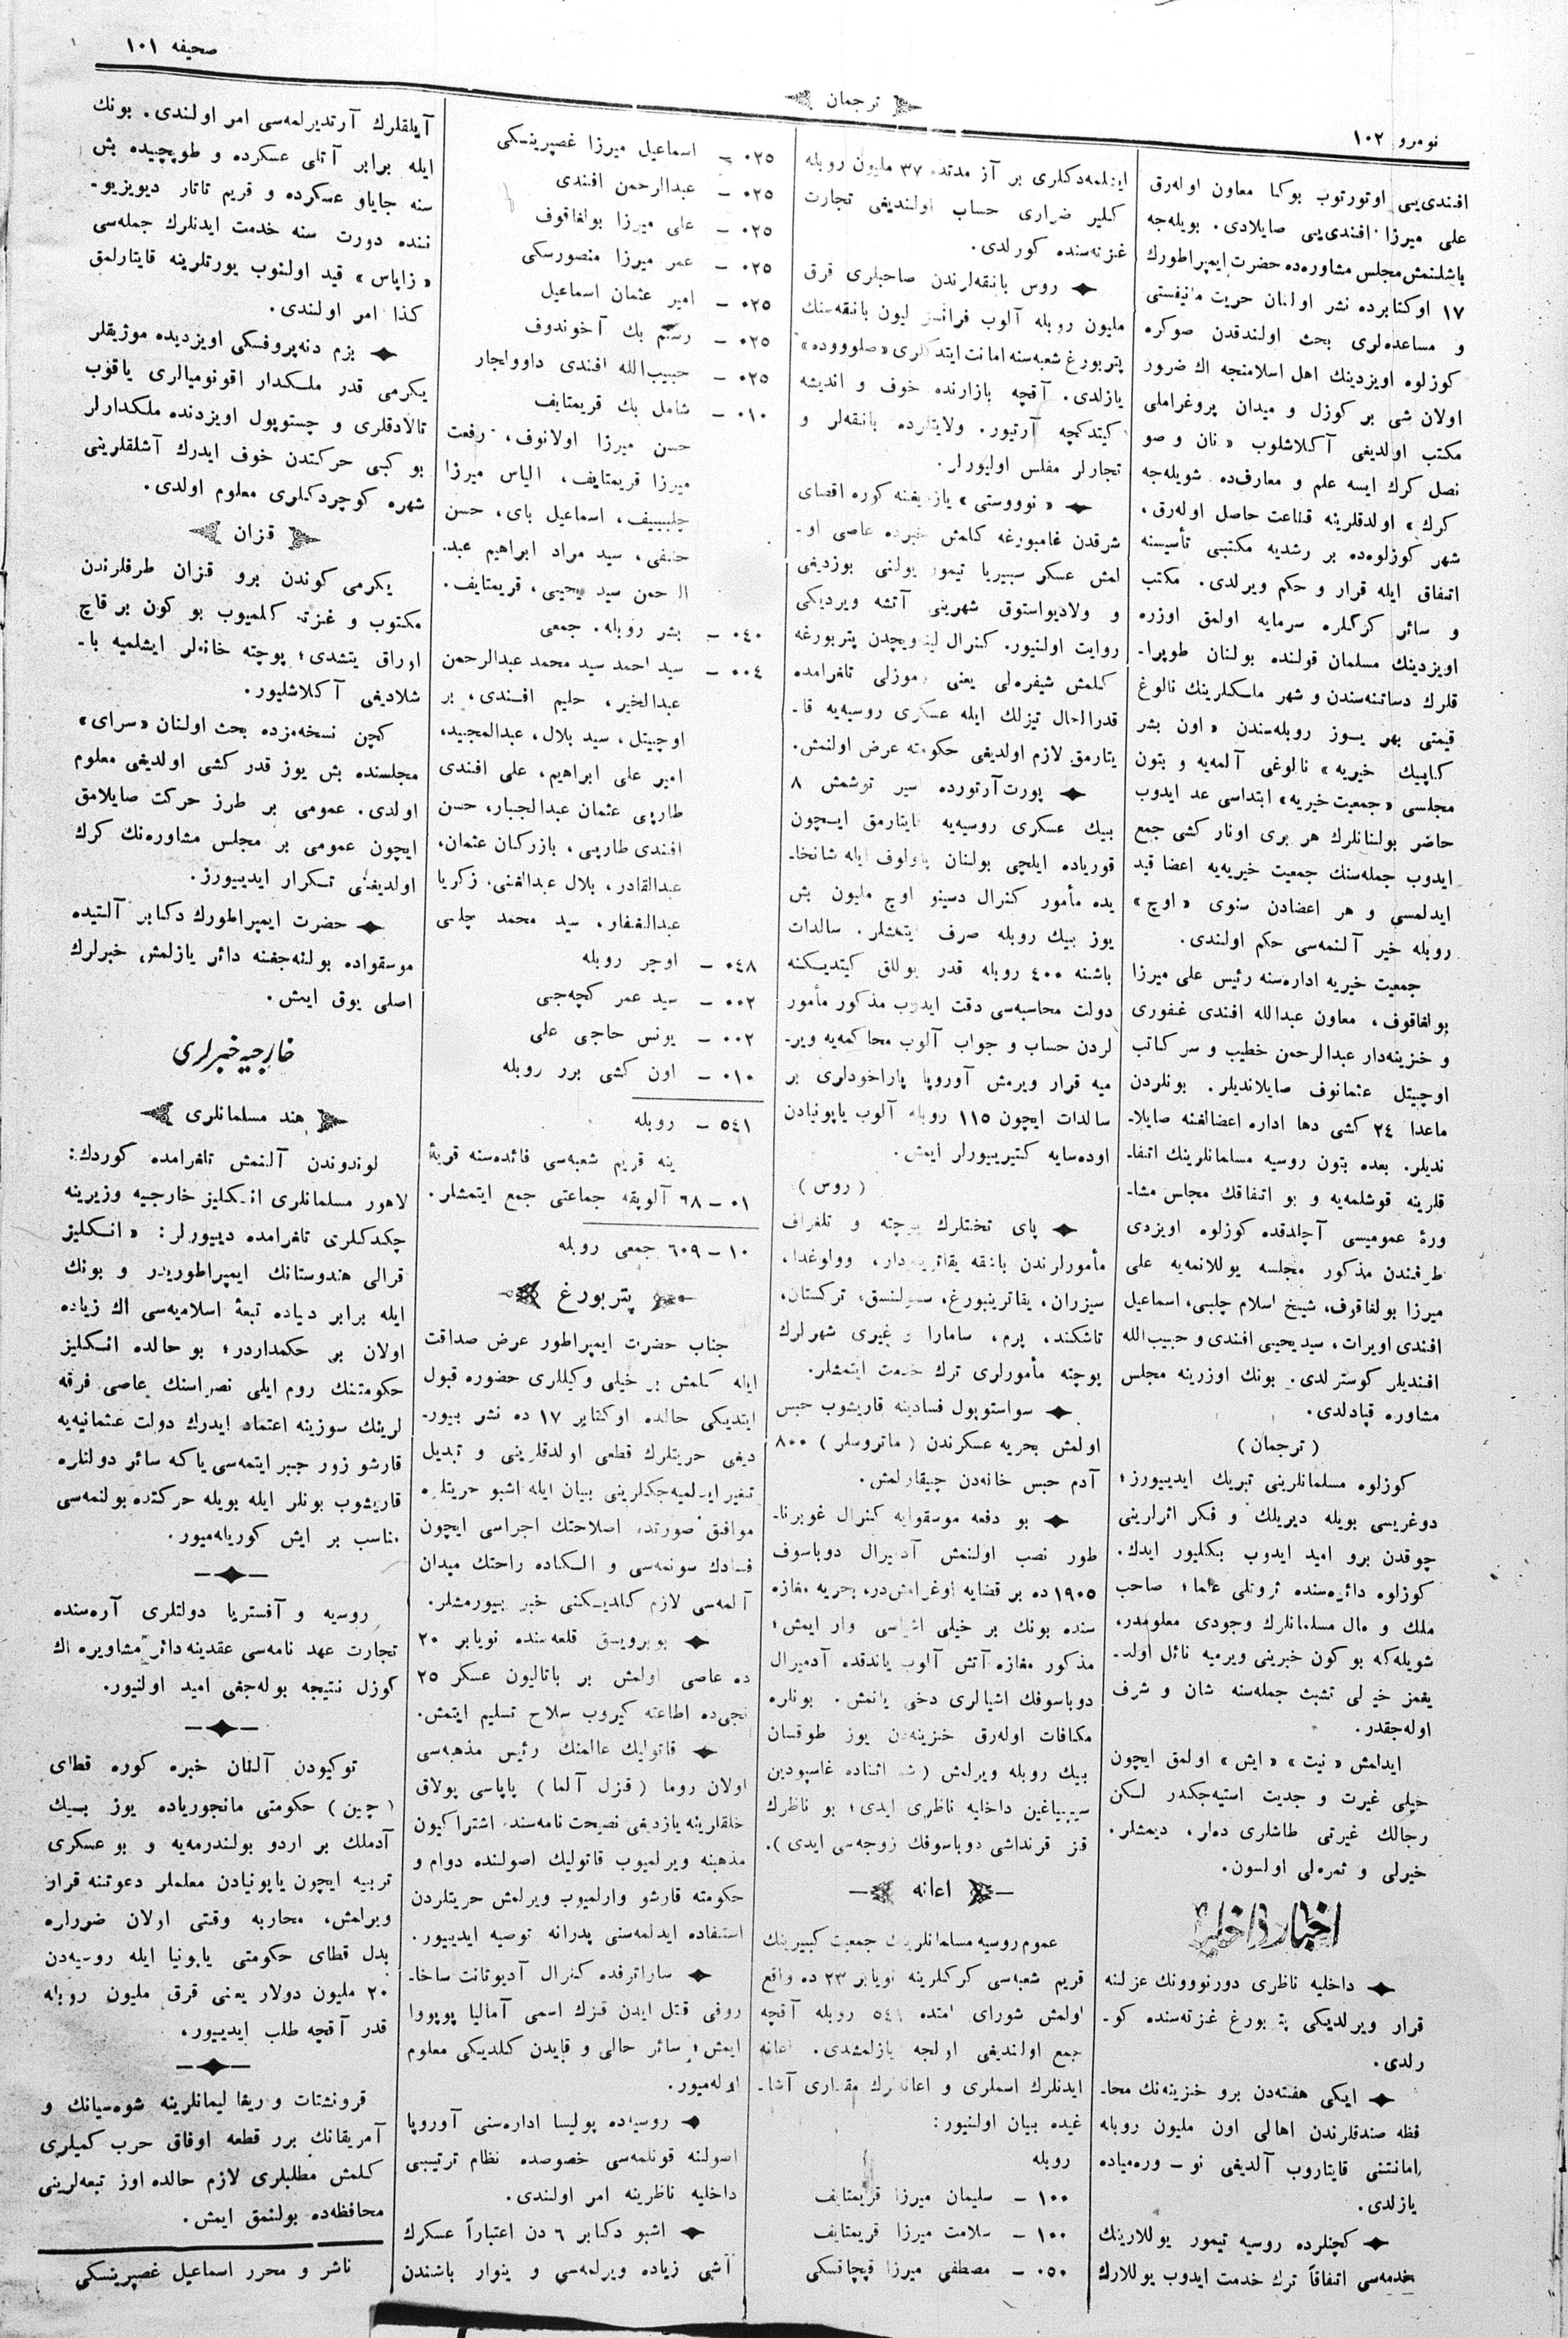 صحیفه ١٠١
ترجمان
نومرو ١٠٢
افندی‌یی اوتورتوب بوكا معاون اوله‌رق
علی میرزا افندی‌یی صایلادی. بویله‌جه
باشلنمش مجلس مشاوره‌ده حضرت ایمپراطورك
١٧ اوكتابرده نشر اولنان حریت مانیفستی
و مساعده‌لری بحث اولندقدن صوكره
كوزلوه اویزدینك اهل اسلامنجه اك ضرور
اولان شی بر كوزل و میدان پروغراملی
مكتب اولدیغی آكلاشلوب «نان و صو
نصل كرك ایسه علم و معارف‌ده شویله‌جه
كرك» اولدقلرینه قناعت حاصل اوله‌رق،
شهر كوزلوه‌ده بر رشدیه مكتبی تأسیسنه
اتفاق ایله قرار و حكم ویرلدی. مكتب
و سائر كركلره سرمایه اولمق اوزره
اویزدینك مسلمان قولنده بولنان طوپرا-
قلرك دساتنه‌سندن و شهر ملكلرینك نالوغ
قیمتی بهر یوز روبله‌سندن «اون بشر
كاپیك خیریه» نالوغی آلمه‌یه و بتون
مجلسی «جمعیت خیریه» ابتداسی عد ایدوب
حاضر بولنانلرك هر بری اونار كشی جمع
ایدوب جمله‌سنك جمعیت خیریه‌یه اعضا قید
ایدلمسی و هر اعضادن سنوی «اوچ»
روبله خیر آلنمه‌سی حكم اولندی.
جمعیت خیریه اداره‌سنه رئیس علی میرزا
بولغاقوف، معاون عبدالله افندی غفوری
و خزینه‌دار عبدالرحمن خطیب و سر كاتب
اوچیتل عثمانوف صایلاندیلر. بونلردن
ماعدا ٢٤ كشی دها اداره اعضالغنه صایلا-
ندیلر. بعده بتون روسیه مسلمانلرینك اتفا-
قلرینه قوشلمه‌یه و بو اتفاقك مجلس مشا-
ورهٔ عمومیسی آچلدقده كوزلوه اویزدی
طرفندن مذكور مجلسه یوللانمه‌یه علی
میرزا بولغاقوف، شیخ اسلام چلبی، اسماعیل
افندی اویرات، سید یحیی افندی و حبیب‌الله
افندیلر كوسترلدی. بونك اوزرینه مجلس
مشاوره قپادلدی.
(ترجمان)
كوزلوه مسلمانلرینی تبریك ایدییورز؛
دوغریسی بویله دیریلك و فكر اثرلرینی
چوقدن برو امید ایدوب بكلیور ایدك.
كوزلوه دائره‌سنده ثروتلی علما؛ صاحب
ملك و مال مسلمانلرك وجودی معلومدر،
شویله‌كه بو كون خبرینی ویرمیه نائل اولد-
یغمز خیرلی تشبث جمله‌سنه شان و شرف
اوله‌جقدر.
ایدلمش «نیت» «ایش» اولمق ایچون
خیلی غیرت و جدیت استیه‌جكدر لكن
رجالك غیرتی طاشلری ده‌لر، دیمشلر.
خیرلی و ثمره‌لی اولسون.
اخبار داخلیه
داخلیه ناظری دورنووونك عزلنه
قرار ویرلدیكی پتربورغ غزته‌سنده كو-
رلدی.
ایكی هفته‌دن برو خزینه‌نك محا-
فظه صندقلرندن اهالی اون ملیون روبله
امانتنی قایتاروب آلدیغی نو - وره‌میاده
یازلدی.
كچنلرده روسیه تیمور یوللارینك
خدمه‌سی اتفاقاً ترك خدمت ایدوب یوللارك
ایشلمه‌دكلری بر آز مدتده ٣٧ ملیون روبله
كلیر ضراری حساب اولندیغی تجارت
غزته‌سنده كورلدی.
روس بانقه‌لرندن صاحبلری قرق
ملیون روبله آلوب فرانسز لیون بانقه‌سنك
پتربورغ شعبه‌سنه امانت ایتدكلری «صلوووده»
یازلدی. آقچه بازارنده خوف و اندیشه
كیتدكچه آرتیور. ولایتلرده بانقه‌لر و
تجارلر مفلس اولیورلر.
«نوووستی» یازدیغنه كوره اقصای
شرقدن غامبورغه كلمش خبرده عاصی او-
لمش عسكر سیبریا تیمور یولنی بوزدیغی
و ولادیواستوق شهرینی آتشه ویردیكی
روایت اولنیور. كنرال لینویچدن پتربورغه
كلمش شیفره‌لی یعنی رموزلی تلغرامده
قدرالحال تیزلك ایله عسكری روسیه‌یه قا-
یتارمق لازم اولدیغی حكومته عرض اولنمش.
پورت آرتورده سیر توشمش ٨
بیك عسكری روسیه‌یه قایتارمق ایچون
قوریاده ایلچی بولنان پاولوف ایله شانخا-
یده مأمور كنرال دسینو اوچ ملیون بش
یوز بیك روبله صرف ایتمشلر. سالدات
باشنه ٤٠٠ روبله قدر یوللق كیتدیكنه
دولت محاسبه‌سی دقت ایدوب مذكور مأمور
لردن حساب و جواب آلوب محاكمه‌یه ویر-
میه قرار ویرمش آوروپا پاراخودلری بر
سالدات ایچون ١١٥ روبله آلوب یاپونیادن
اوده‌سایه كتیرییورلر ایمش.
(روس)
پای تختلرك پوچته و تلغراف
مأمورلرندن باشقه یقاترینودار، وولوغدا،
سیزران، یقاترینبورغ، سمولنسق، تركستان،
تاشكند، پرم، سامارا و غیری شهرلرك
پوچته مأمورلری ترك خدمت ایتمشلر.
سواستوپول فسادینه قاریشوب حبس
اولمش بحریه عسكرندن (ماتروسلر) ٨٠٠
آدم حبس خانه‌دن چیقارلمش.
بو دفعه موسقوایه كنرال غوبرنا-
طور نصب اولنمش آدمیرال دوباسوف
١٩٠٥ ده بر قضایه اوغرامش‌در، بحریه مغازه
سنده بونك بر خیلی اشیاسی وار ایمش؛
مذكور مغازه آتش آلوب یاندقده آدمیرال
دوباسوفك اشیالری دخی یانمش. بونلره
مكافات اوله‌رق خزینه‌دن یوز طوقسان
بیك روبله ویرلمش (شو اثناده غاسپودین
سیپیاغین داخلیه ناظری ایدی؛ بو ناظرك
قز قرنداشی دوباسوفك زوجه‌سی ایدی).
اعانه
عموم روسیه مسلمانلرینك جمعیت كبیرینك
قریم شعبه‌سی كركلرینه نویابر ٢٣ ده واقع
اولمش شورای امتده ٥٤١ روبله آقچه
جمع اولندیغی اولجه یازلمشدی. اعانه
ایدنلرك اسملری و اعانه‌لرك مقداری آشا-
غیده بیان اولنیور:
روبله
١٠٠ - سلیمان میرزا قریمتایف
١٠٠ - سلامت میرزا قریمتایف
٠٥٠ - مصطفی میرزا قپچاقسكی
٠٢٥ - اسماعیل میرزا غصپرینسكی
٠٢٥ - عبدالرحمن افندی
٠٢٥ - علی میرزا بولغاقوف
٠٢٥ - عمر میرزا منصورسكی
٠٢٥ - امیر عثمان اسماعیل
٠٢٥ - رستم بك آخوندوف
٠٢٥ - حبیب‌الله افندی داوولجار
٠١٠ - شامل بك قریمتایف
حسن میرزا اولانوف، رفعت
میرزا قریمتایف، الیاس میرزا
چلبییف، اسماعیل بای، حسن
حنفی، سید مراد ابراهیم عبد-
الرحمن سید یحیی، قریمتایف.
٠٤٠ - بشر روبله. جمعی
٠٠٤ - سید احمد سید محمد عبدالرحمن
عبدالخیر، حلیم افندی، بر
اوچیتل، سید بلال، عبدالمجید،
امیر علی ابراهیم، علی افندی
طارپی عثمان عبدالجبار، حسن
افندی طارپی، بازركان عثمان،
عبدالقادر، بلال عبدالغنی، زكریا
عبدالغفار، سید محمد چلبی
٠٤٨ - اوچر روبله
٠٠٢ - سید عمر كچه‌جی
٠٠٢ - یونس حاجی علی
٠١٠ - اون كشی برر روبله
٥٤١ - روبله
ینه قریم شعبه‌سی فائده‌سنه قریهٔ
٠١ - ٦٨ آلوپقه جماعتی جمع ایتمشلر.
١٠ - ٦٠٩ جمعی روبله
پتربورغ
جناب حضرت ایمپراطور عرض صداقت
ایله كلمش بر خیلی وكیللری حضوره قبول
ایتدیكی حالده اوكتابر ١٧ ده نشر بیور-
دیغی حریتلرك قطعی اولدقلرینی و تبدیل
تغیر ایدلمیه‌جكلرینی بیان ایله اشبو حریتلره
موافق صورتده اصلاحتك اجراسی ایچون
فسادك سونمه‌سی و الكاده راحتك میدان
آلمه‌سی لازم كلدیكنی خبر بیورمشلر.
بوبرویسق قلعه‌سنده نویابر ٢٠
ده عاصی اولمش بر باتالیون عسكر ٢٥
نجی‌ده اطاعته كیروب سلاح تسلیم ایتمش.
قاتولیك عالمنك رئیس مذهبه‌سی
اولان روما (قزل آلما) پاپاسی پولاق
خلقلرینه یازدیغی نصیحت نامه‌سنده اشتراكیون
مذهبنه ویرلمیوب قاتولیك اصولنده دوام و
حكومته قارشو وارلمیوب ویرلمش حریتلردن
استفاده ایدلمه‌سنی پدرانه توصیه ایدییور.
ساراتوفده كنرال آدیوتانت ساخا-
روفی قتل ایدن قزك اسمی آمالیا پوپووا
ایمش؛ سائر حالی و قایدن كلدیكی معلوم
اوله‌میور.
روسیاده پولیسا اداره‌سنی آوروپا
اصولنه قونلمه‌سی خصوصده نظام ترتیبی
داخلیه ناظرینه امر اولندی.
اشبو دكابر ٦ دن اعتباراً عسكرك
آشی زیاده ویرلمه‌سی و ینوار باشندن
آیلقلرك آرتدیرلمه‌سی امر اولندی. بونك
ایله برابر آتلی عسكرده و طوپچیده بش
سنه جایاو عسكرده و قریم تاتار دیویزیو-
ننده دورت سنه خدمت ایدنلرك جمله‌سی
«زاپاس» قید اولنوب یورتلرینه قایتارلمق
كذا امر اولندی.
بزم دنه‌پروفسكی اویزدیده موژیقلر
یكرمی قدر ملكدار اقونومیالری یاقوب
تالادقلری و چستوپول اویزدنده ملكدارلر
بو كبی حركتدن خوف ایدرك آشلقلرینی
شهره كوچردكلری معلوم اولدی.
قزان
یكرمی كوندن برو قزان طرفلرندن
مكتوب و غزته كلمیوب بو كون بر قاچ
اوراق یتشدی؛ پوچته خانه‌لر ایشلمیه با-
شلادیغی آكلاشلیور.
كچن نسخه‌مزده بحث اولنان «سرای»
مجلسنده بش یوز قدر كشی اولدیغی معلوم
اولدی. عمومی بر طرز حركت صایلامق
ایچون عمومی بر مجلس مشاوره‌نك كرك
اولدیغنی تكرار ایدییورز.
حضرت ایمپراطورك دكابر آلتیده
موسقواده بولنه‌جغنه دائر یازلمش خبرلرك
اصلی یوق ایمش.
خارجیه خبرلری
هند مسلمانلری
لوندوندن آلنمش تلغرامده كوردك:
لاهور مسلمانلری انكلیز خارجیه وزیرینه
چكدكلری تلغرامده دییورلر: «انكلیز
قرالی هندوستانك ایمپراطوریدر و بونك
ایله برابر دیاده تبعهٔ اسلامیه‌سی اك زیاده
اولان بر حكمداردر؛ بو حالده انكلیز
حكومتنك روم ایلی نصراسنك عاصی فرقه
لرینك سوزینه اعتماد ایدرك دولت عثمانیه‌یه
قارشو زور جبر ایتمه‌سی یاكه سائر دولتلره
قاریشوب بونلر ایله بویله حركتده بولنمه‌سی
مناسب بر ایش كوریله‌میور.
روسیه و آفستریا دولتلری آره‌سنده
تجارت عهد نامه‌سی عقدینه دائر مشاویره اك
كوزل نتیجه بوله‌جغی امید اولنیور.
توكیودن آلنان خبره كوره قطای
(چین) حكومتی مانجوریاده یوز بیك
آدملك بر اردو بولندرمه‌یه و بو عسكری
تربیه ایچون یاپونیادن معلملر دعوتنه قرار
ویرلمش، محاربه وقتی اولان ضرراره
بدل قطای حكومتی یاپونیا ایله روسیه‌دن
٢٠ ملیون دولار یعنی قرق ملیون روبله
قدر آقچه طلب ایدییور.
قرونشتات و ریغا لیمانلرینه شوه‌سیانك و
آمریقانك برر قطعه اوفاق حرب كمیلری
كلمش مطلبلری لازم حالده اوز تبعه‌لرینی
محافظه‌ده بولنمق ایمش.
ناشر و محرر اسماعیل غصپرینسكی